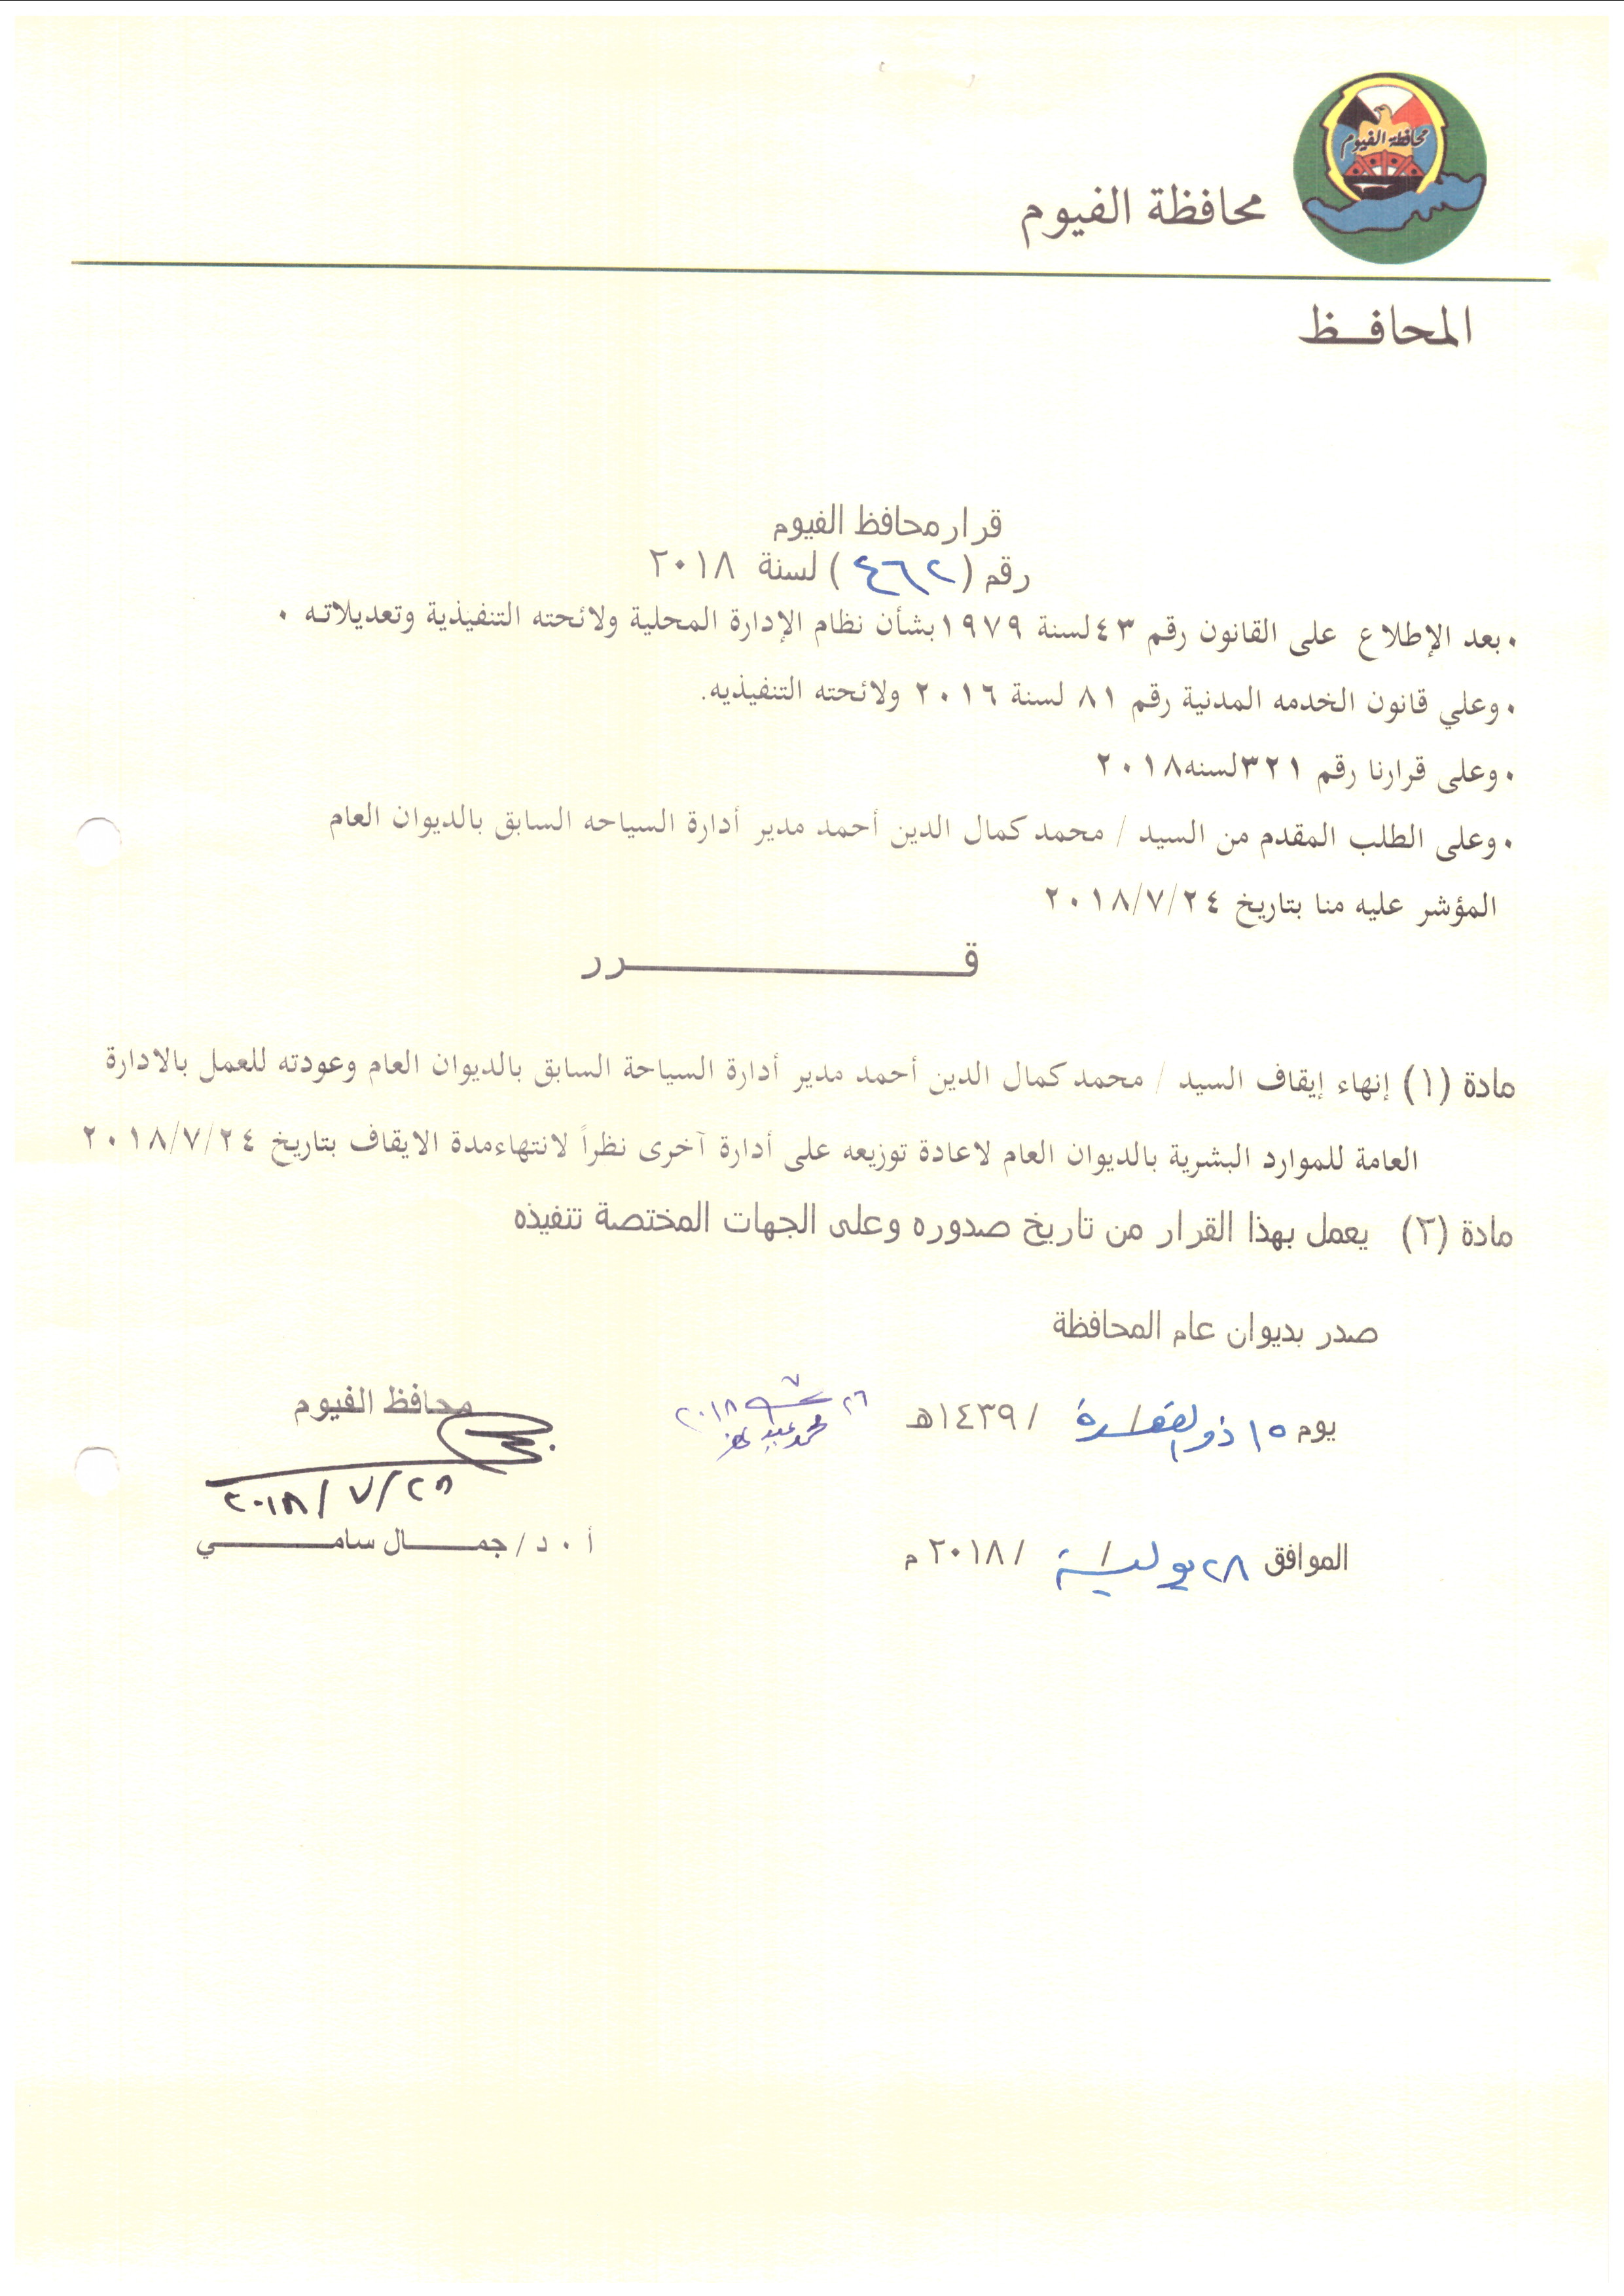 محافظة الفيوم
محافظة الفيوم
المحافــظ
قرار محافظ الفيوم
رقم (٤٦٢) لسنة ٢٠١٨
• بعد الإطلاع على القانون رقم ٤٣ لسنة ١٩٧٩ بشأن نظام الإدارة المحلية ولائحته التنفيذية وتعديلاته ٠
• وعلي قانون الخدمه المدنية رقم ٨١ لسنة ٢٠١٦ ولائحته التنفيذيه.
• وعلى قرارنا رقم ٣٢١ لسنه ٢٠١٨
• وعلى الطلب المقدم من السيد / محمد كمال الدين أحمد مدير أدارة السياحه السابق بالديوان العام
المؤشر عليه منا بتاريخ ٢٠١٨/٧/٢٤
قــــــــــــــــــــرر
مادة (١) إنهاء إيقاف السيد / محمد كمال الدين أحمد مدير أدارة السياحة السابق بالديوان العام وعودته للعمل بالادارة
العامة للموارد البشرية بالديوان العام لاعادة توزيعه على أدارة آخرى نظراً لانتهاءمدة الايقاف بتاريخ ٢٠١٨/٧/٢٤
مادة (٢) يعمل بهذا القرار من تاريخ صدوره وعلى الجهات المختصة تنفيذه
صدر بديوان عام المحافظة
يوم ١٥ ذو القعدة / ١٤٣٩هـ
الموافق ٢٨ يوليه / ٢٠١٨ م
محافظ الفيوم
٢٠١٨/٧/٢٨
أ ٠ د / جمـــــال سامـــــــــي